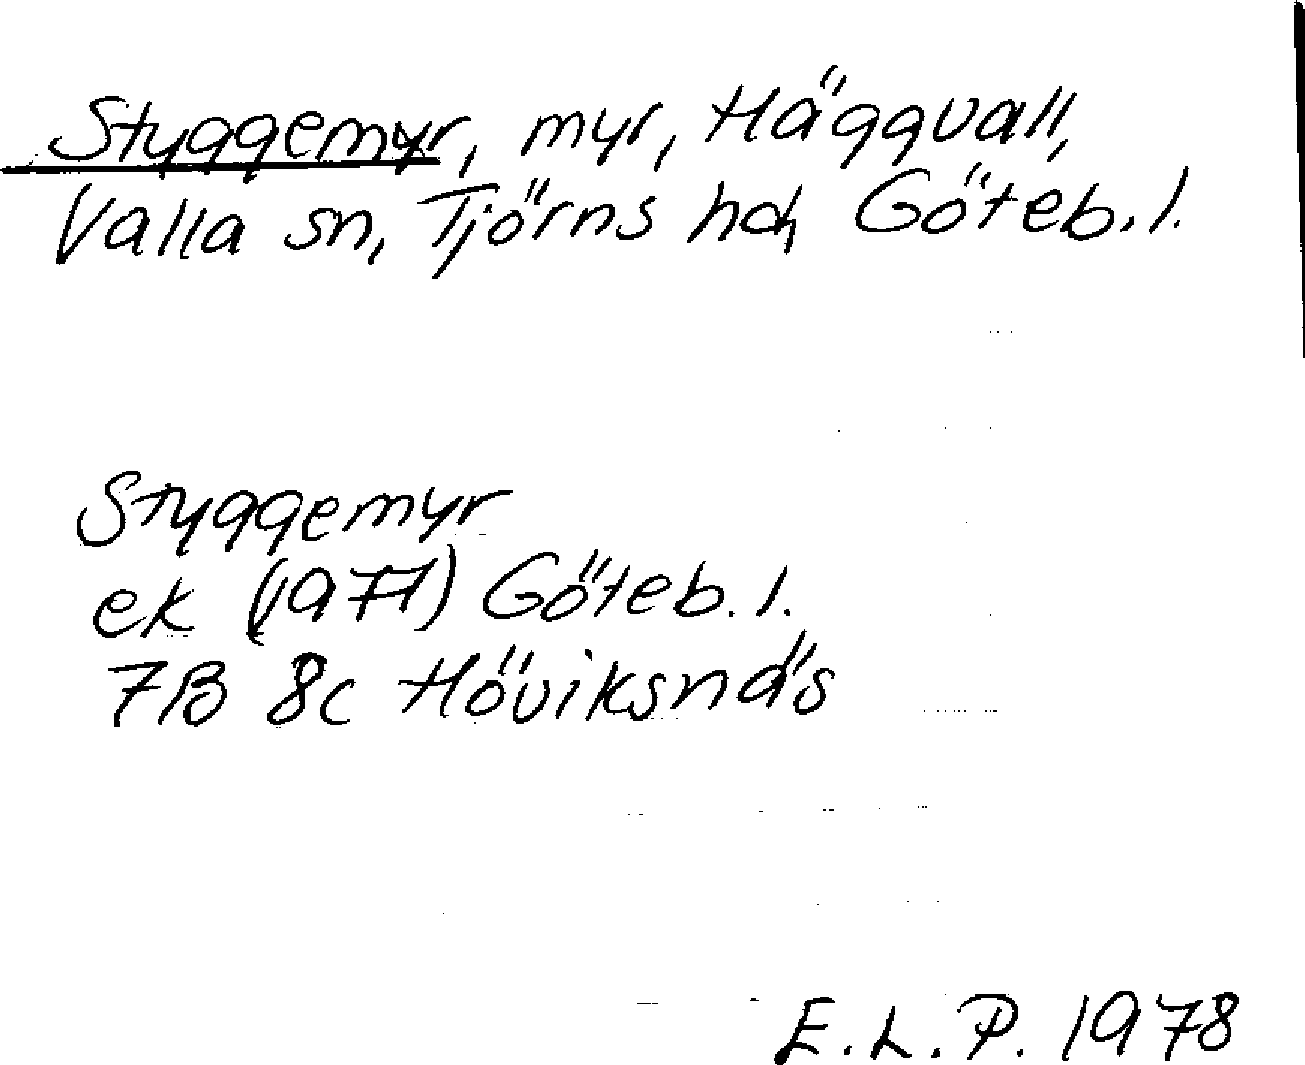 Styggemyr, myr, Häggvall,
Valla sn, Tjörns hd, Göteb. l.
Styggemyr
ek (1971) Göteb. l.
7B 8c Höviksnäs
E. L. P. 1978